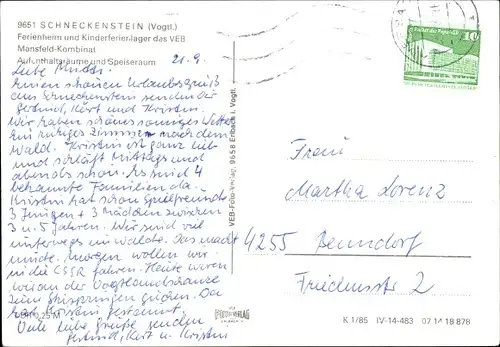 9651 SCHNECKENSTEIN (Vogtl.)
Ferienheim und Kinderferienlager des VEB
Mansfeld-Kombinat
Aufenthaltsräume und Speiseraum
21.9.
Liebe Mutti.
Einen schönen Urlaubsgruß
von Schneckenstein senden dir
Gertrud, Kurt und Kristin.
Wir haben schönes sonniges Wetter
Ein ruhiges Zimmer nach dem
Wald. Kristin ist ganz lieb
und schläft Mittags und
abends schön. Es sind 4
bekannte Familien da.
Kristin hat schon Spielfreunde
3 Jungen + 3 Mädchen zwischen
3 u. 5 Jahren. Wir sind viel
unterwegs im Walde. Das macht
müde. Morgen wollen wir
in die CSSR fahren. Heute waren
wir an der Vogtlandschanze
zum Skispringen. Da
hat Kristin gestaunt.
Viele liebe Grüße senden
Gertrud, Kurt u. Kristin
VEB Foto-Verlag, 9658 Erlbach i. Vogtl.
10
Frau
Martha Lorenz
4255 Benndorf
Friedensstr. 2
0,25 M
FOTO-VERLAG
ERLBACH
K 1/85 IV-14-483 07 14 18 878